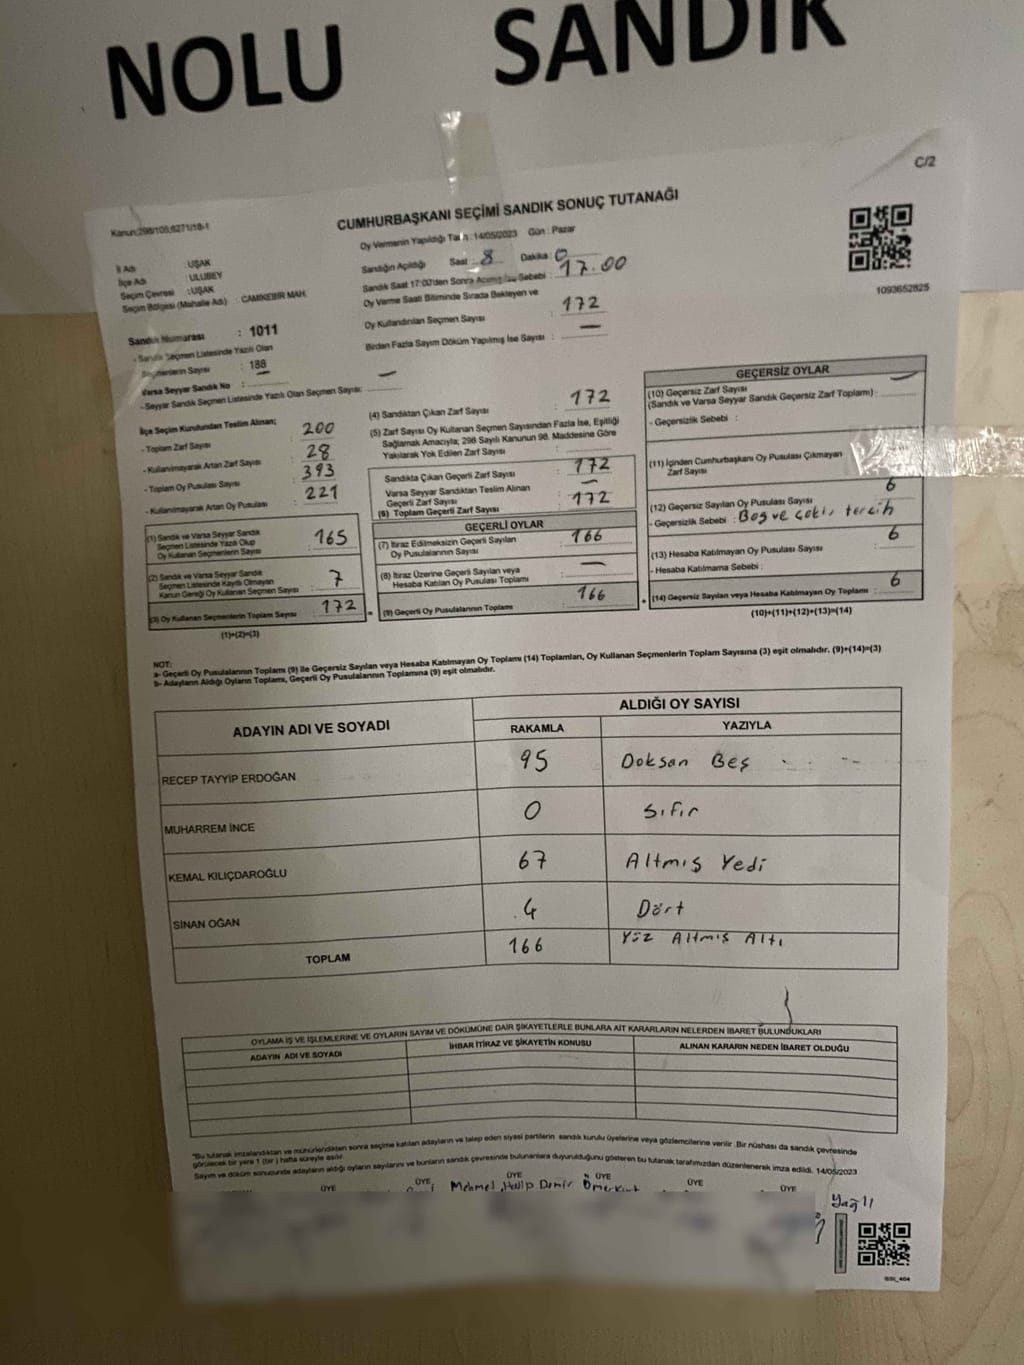 NOLU SANDIK
C/2
Kanun:298/105,6271/18-1
CUMHURBAŞKANI SEÇİMİ SANDIK SONUÇ TUTANAĞI
Oy Vermenin Yapıldığı Tarih : 14/05/2023 Gün : Pazar
Sandığın Açıldığı Saat : 8 Dakika : 0
Sandık Saat 17:00'den Sonra Sebebi : 17.00
Oy Verme Saati Bitiminde Sırada Bekleyen ve
Oy Kullandırılan Seçmen Sayısı : 172
Birden Fazla Sayım Döküm Yapılmış İse Sayısı : —
1093652825
İl Adı : UŞAK
İlçe Adı : ULUBEY
Seçim Çevresi : UŞAK
Seçim Bölgesi (Mahalle Adı) : CAMİKEBİR MAH.
Sandık Numarası : 1011
- Sandık Seçmen Listesinde Yazılı Olan
Seçmenlerin Sayısı : 188
Varsa Seyyar Sandık No : —
- Seyyar Sandık Seçmen Listesinde Yazılı Olan Seçmen Sayısı: —
İlçe Seçim Kurulundan Teslim Alınan;
- Toplam Zarf Sayısı : 200
- Kullanılmayarak Artan Zarf Sayısı : 28
- Toplam Oy Pusulası Sayısı : 393
- Kullanılmayarak Artan Oy Pusulası : 221
(1) Sandık ve Varsa Seyyar Sandık
Seçmen Listesinde Yazılı Olup
Oy Kullanan Seçmenlerin Sayısı : 165
(2) Sandık ve Varsa Seyyar Sandık
Seçmen Listesinde Kayıtlı Olmayan
Kanun Gereği Oy Kullanan Seçmen Sayısı : 7
(3) Oy Kullanan Seçmenlerin Toplam Sayısı : 172
(1)+(2)=(3)
(4) Sandıktan Çıkan Zarf Sayısı : 172
(5) Zarf Sayısı Oy Kullanan Seçmen Sayısından Fazla İse, Eşitliği
Sağlamak Amacıyla; 298 Sayılı Kanunun 98. Maddesine Göre
Yakılarak Yok Edilen Zarf Sayısı :
Sandıkta Çıkan Geçerli Zarf Sayısı : 172
Varsa Seyyar Sandıktan Teslim Alınan
Geçerli Zarf Sayısı : —
(6) Toplam Geçerli Zarf Sayısı : 172
GEÇERLİ OYLAR
(7) İtiraz Edilmeksizin Geçerli Sayılan
Oy Pusulalarının Sayısı : 166
(8) İtiraz Üzerine Geçerli Sayılan veya
Hesaba Katılan Oy Pusulası Toplamı : —
= (9) Geçerli Oy Pusulalarının Toplamı : 166
GEÇERSİZ OYLAR
(10) Geçersiz Zarf Sayısı
(Sandık ve Varsa Seyyar Sandık Geçersiz Zarf Toplamı) : —
- Geçersizlik Sebebi :
(11) İçinden Cumhurbaşkanı Oy Pusulası Çıkmayan
Zarf Sayısı
(12) Geçersiz Sayılan Oy Pusulası Sayısı : 6
- Geçersizlik Sebebi : Boş ve çoklu tercih
(13) Hesaba Katılmayan Oy Pusulası Sayısı : 6
- Hesaba Katılmama Sebebi :
+ (14) Geçersiz Sayılan veya Hesaba Katılmayan Oy Toplamı : 6
(10)+(11)+(12)+(13)=(14)
NOT:
a- Geçerli Oy Pusulalarının Toplamı (9) ile Geçersiz Sayılan veya Hesaba Katılmayan Oy Toplamı (14) Toplamları, Oy Kullanan Seçmenlerin Toplam Sayısına (3) eşit olmalıdır. (9)+(14)=(3)
b- Adayların Aldığı Oyların Toplamı, Geçerli Oy Pusulalarının Toplamına (9) eşit olmalıdır.
ADAYIN ADI VE SOYADI ALDIĞI OY SAYISI
RAKAMLA YAZIYLA
RECEP TAYYİP ERDOĞAN 95 Doksan Beş
MUHARREM İNCE 0 Sıfır
KEMAL KILIÇDAROĞLU 67 Altmış Yedi
SİNAN OĞAN 4 Dört
TOPLAM 166 Yüz Altmış Altı
OYLAMA İŞ VE İŞLEMLERİNE VE OYLARIN SAYIM VE DÖKÜMÜNE DAİR ŞİKAYETLERLE BUNLARA AİT KARARLARIN NELERDEN İBARET BULUNDUKLARI
ADAYIN ADI VE SOYADI İHBAR İTİRAZ VE ŞİKAYETİN KONUSU ALINAN KARARIN NEDEN İBARET OLDUĞU
"Bu tutanak imzalandıktan ve mühürlendikten sonra seçime katılan adayların ve talep eden siyasi partilerin sandık kurulu üyelerine veya gözlemcilerine verilir. Bir nüshası da sandık çevresinde
görülecek bir yere 1 (bir) hafta süreyle asılır.
Sayım ve döküm sonucunda adayların aldığı oyların sayılarını ve bunların sandık çevresinde bulunanlara duyurulduğunu gösteren bu tutanak tarafımızdan düzenlenerek imza edildi. 14/05/2023
ÜYE ÜYE ÜYE ÜYE ÜYE ÜYE
Mehmet Halip Demir Ömer Kurt
Yağlı